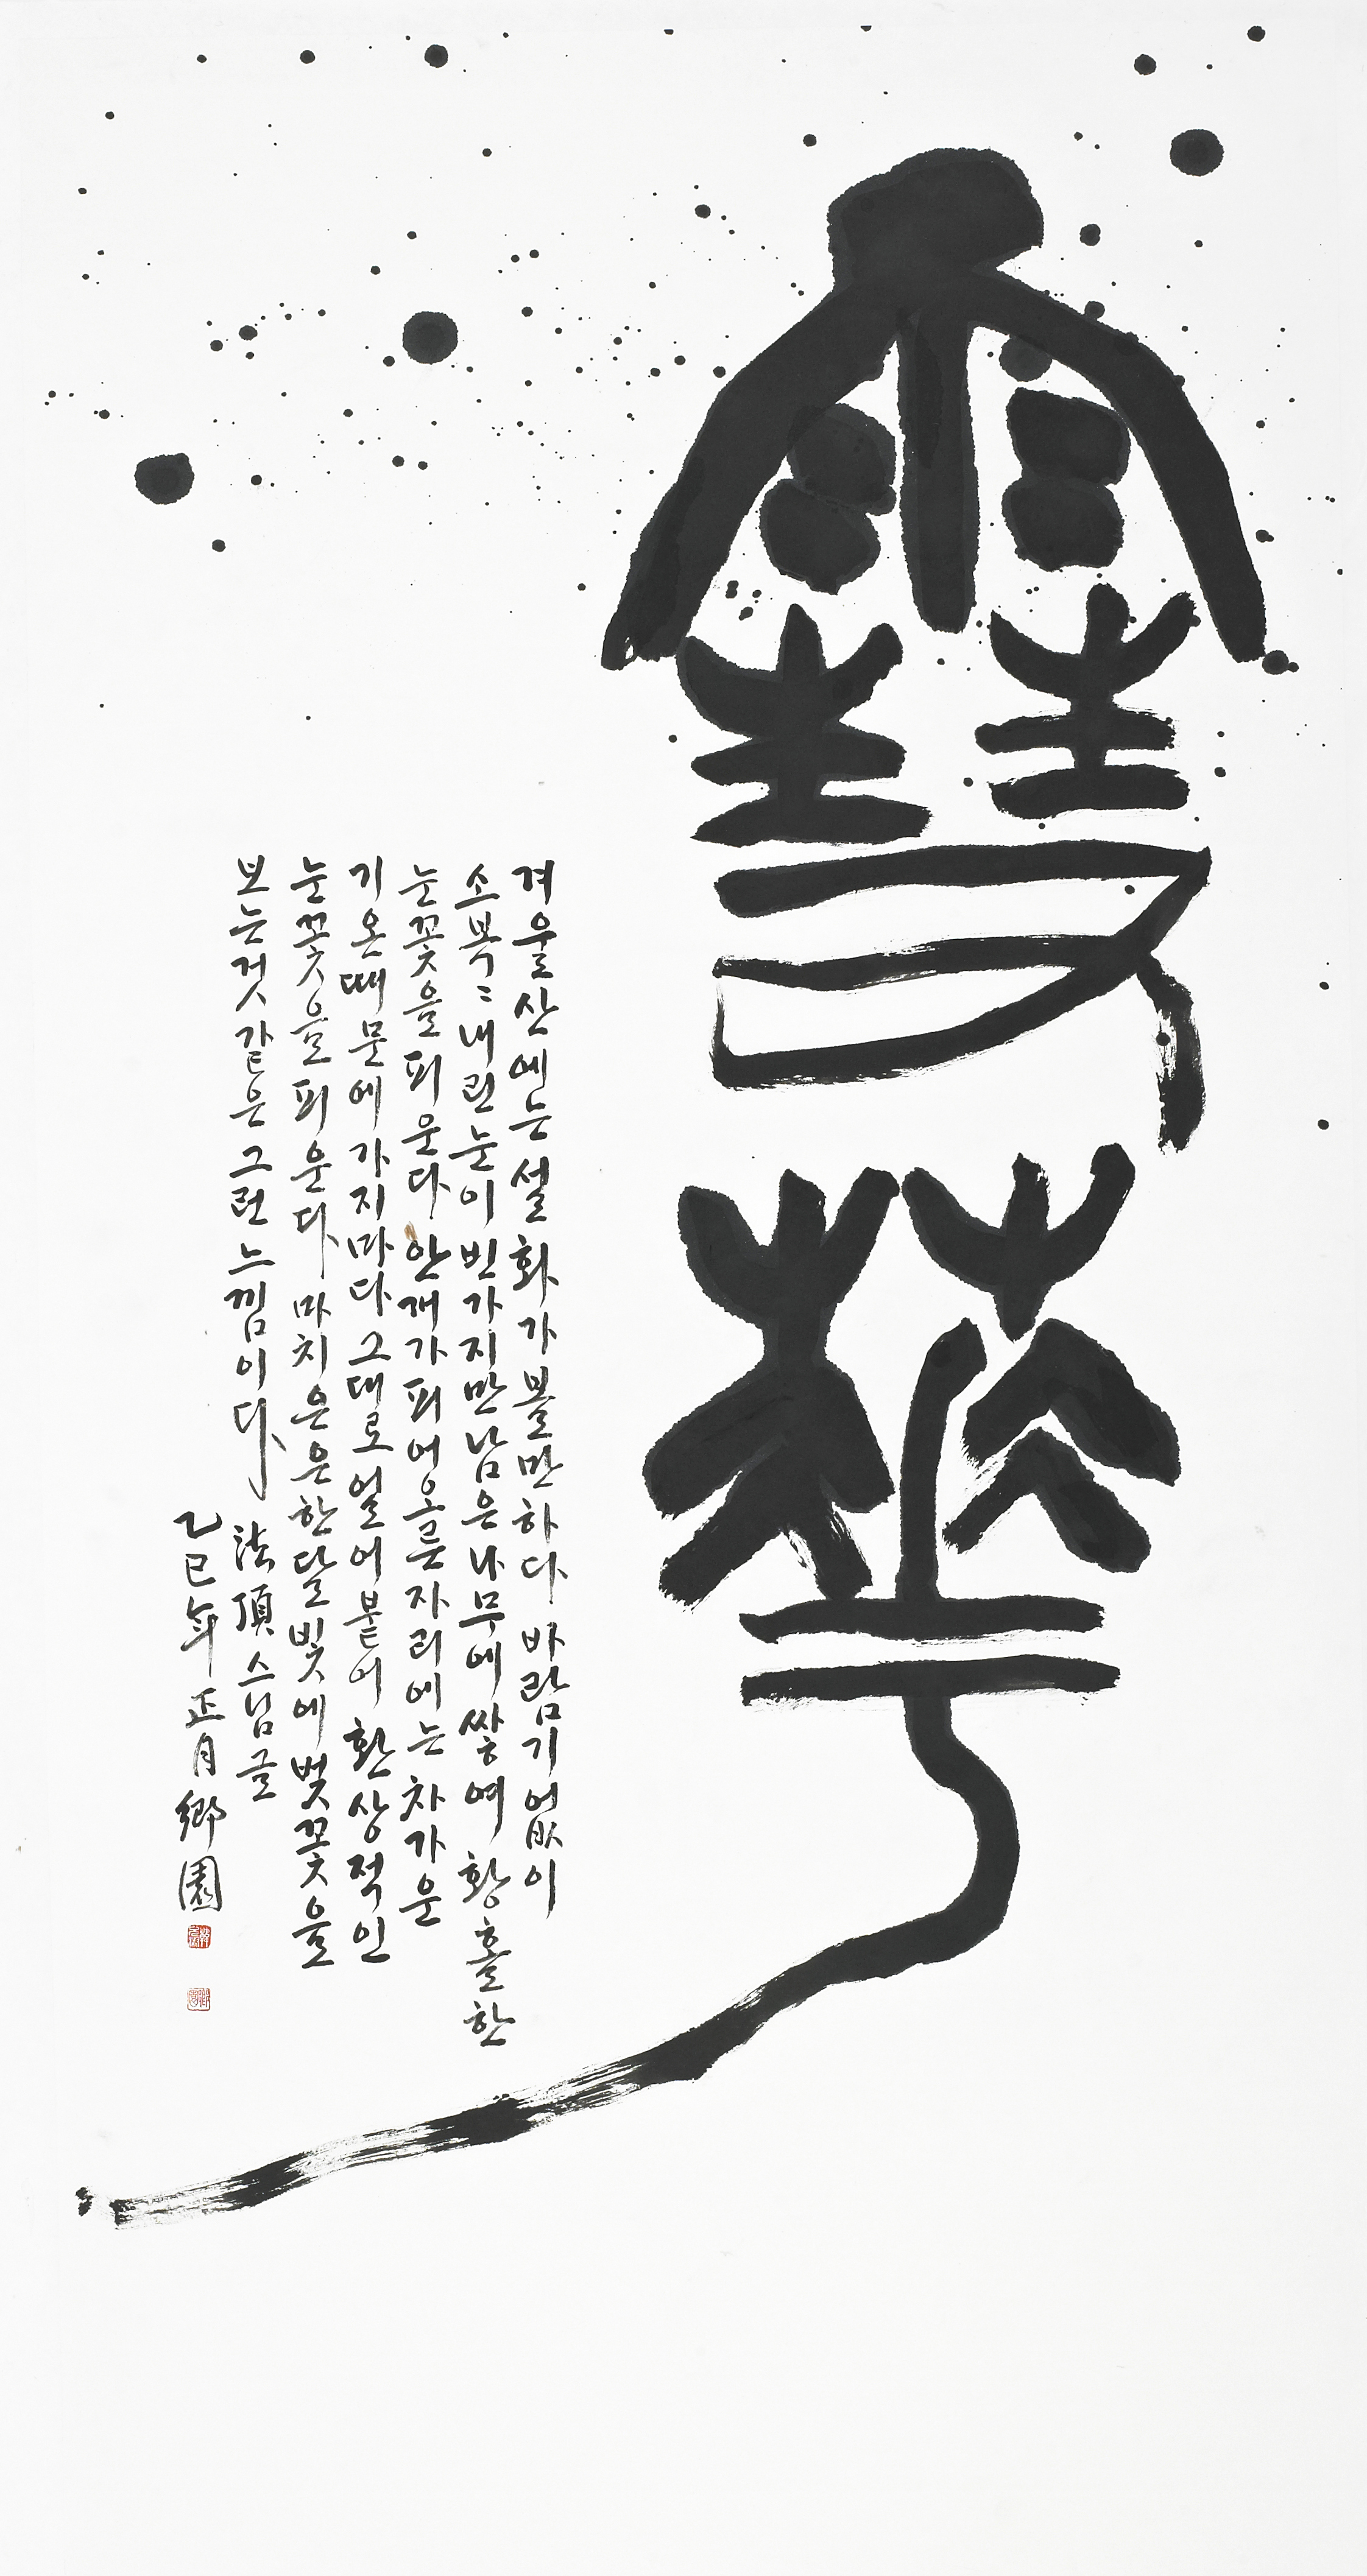 雪華
겨울산에는 설화가 볼만하다 바람기 없이
소복〻 내린 눈이 빈가지만 남은 나무에 쌓여 황홀한
눈꽃을 피운다 안개가 피어오른 자리에는 차가운
기온때문에 가지마다 그대로 얼어붙어 환상적인
눈꽃을 피운다 마치 은은한 달빛에 벚꽃을
보는것 같은 그런 느낌이다 法頂스님글
乙巳年 正月 鄕園